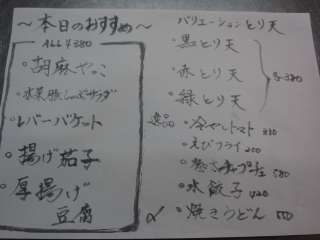 ～本日のおすすめ～
ALL ¥380
・胡麻やっこ
・水菜豚しゃぶサラダ
・レバーバケット
・揚げ茄子
・厚揚げ
豆腐
バリエーションとり天
・黒とり天
・赤とり天
・緑とり天
各380
逸品
・冷やしトマト
・えびフライ 200
チャプチェ 580
・水餃子 420
・焼きうどん